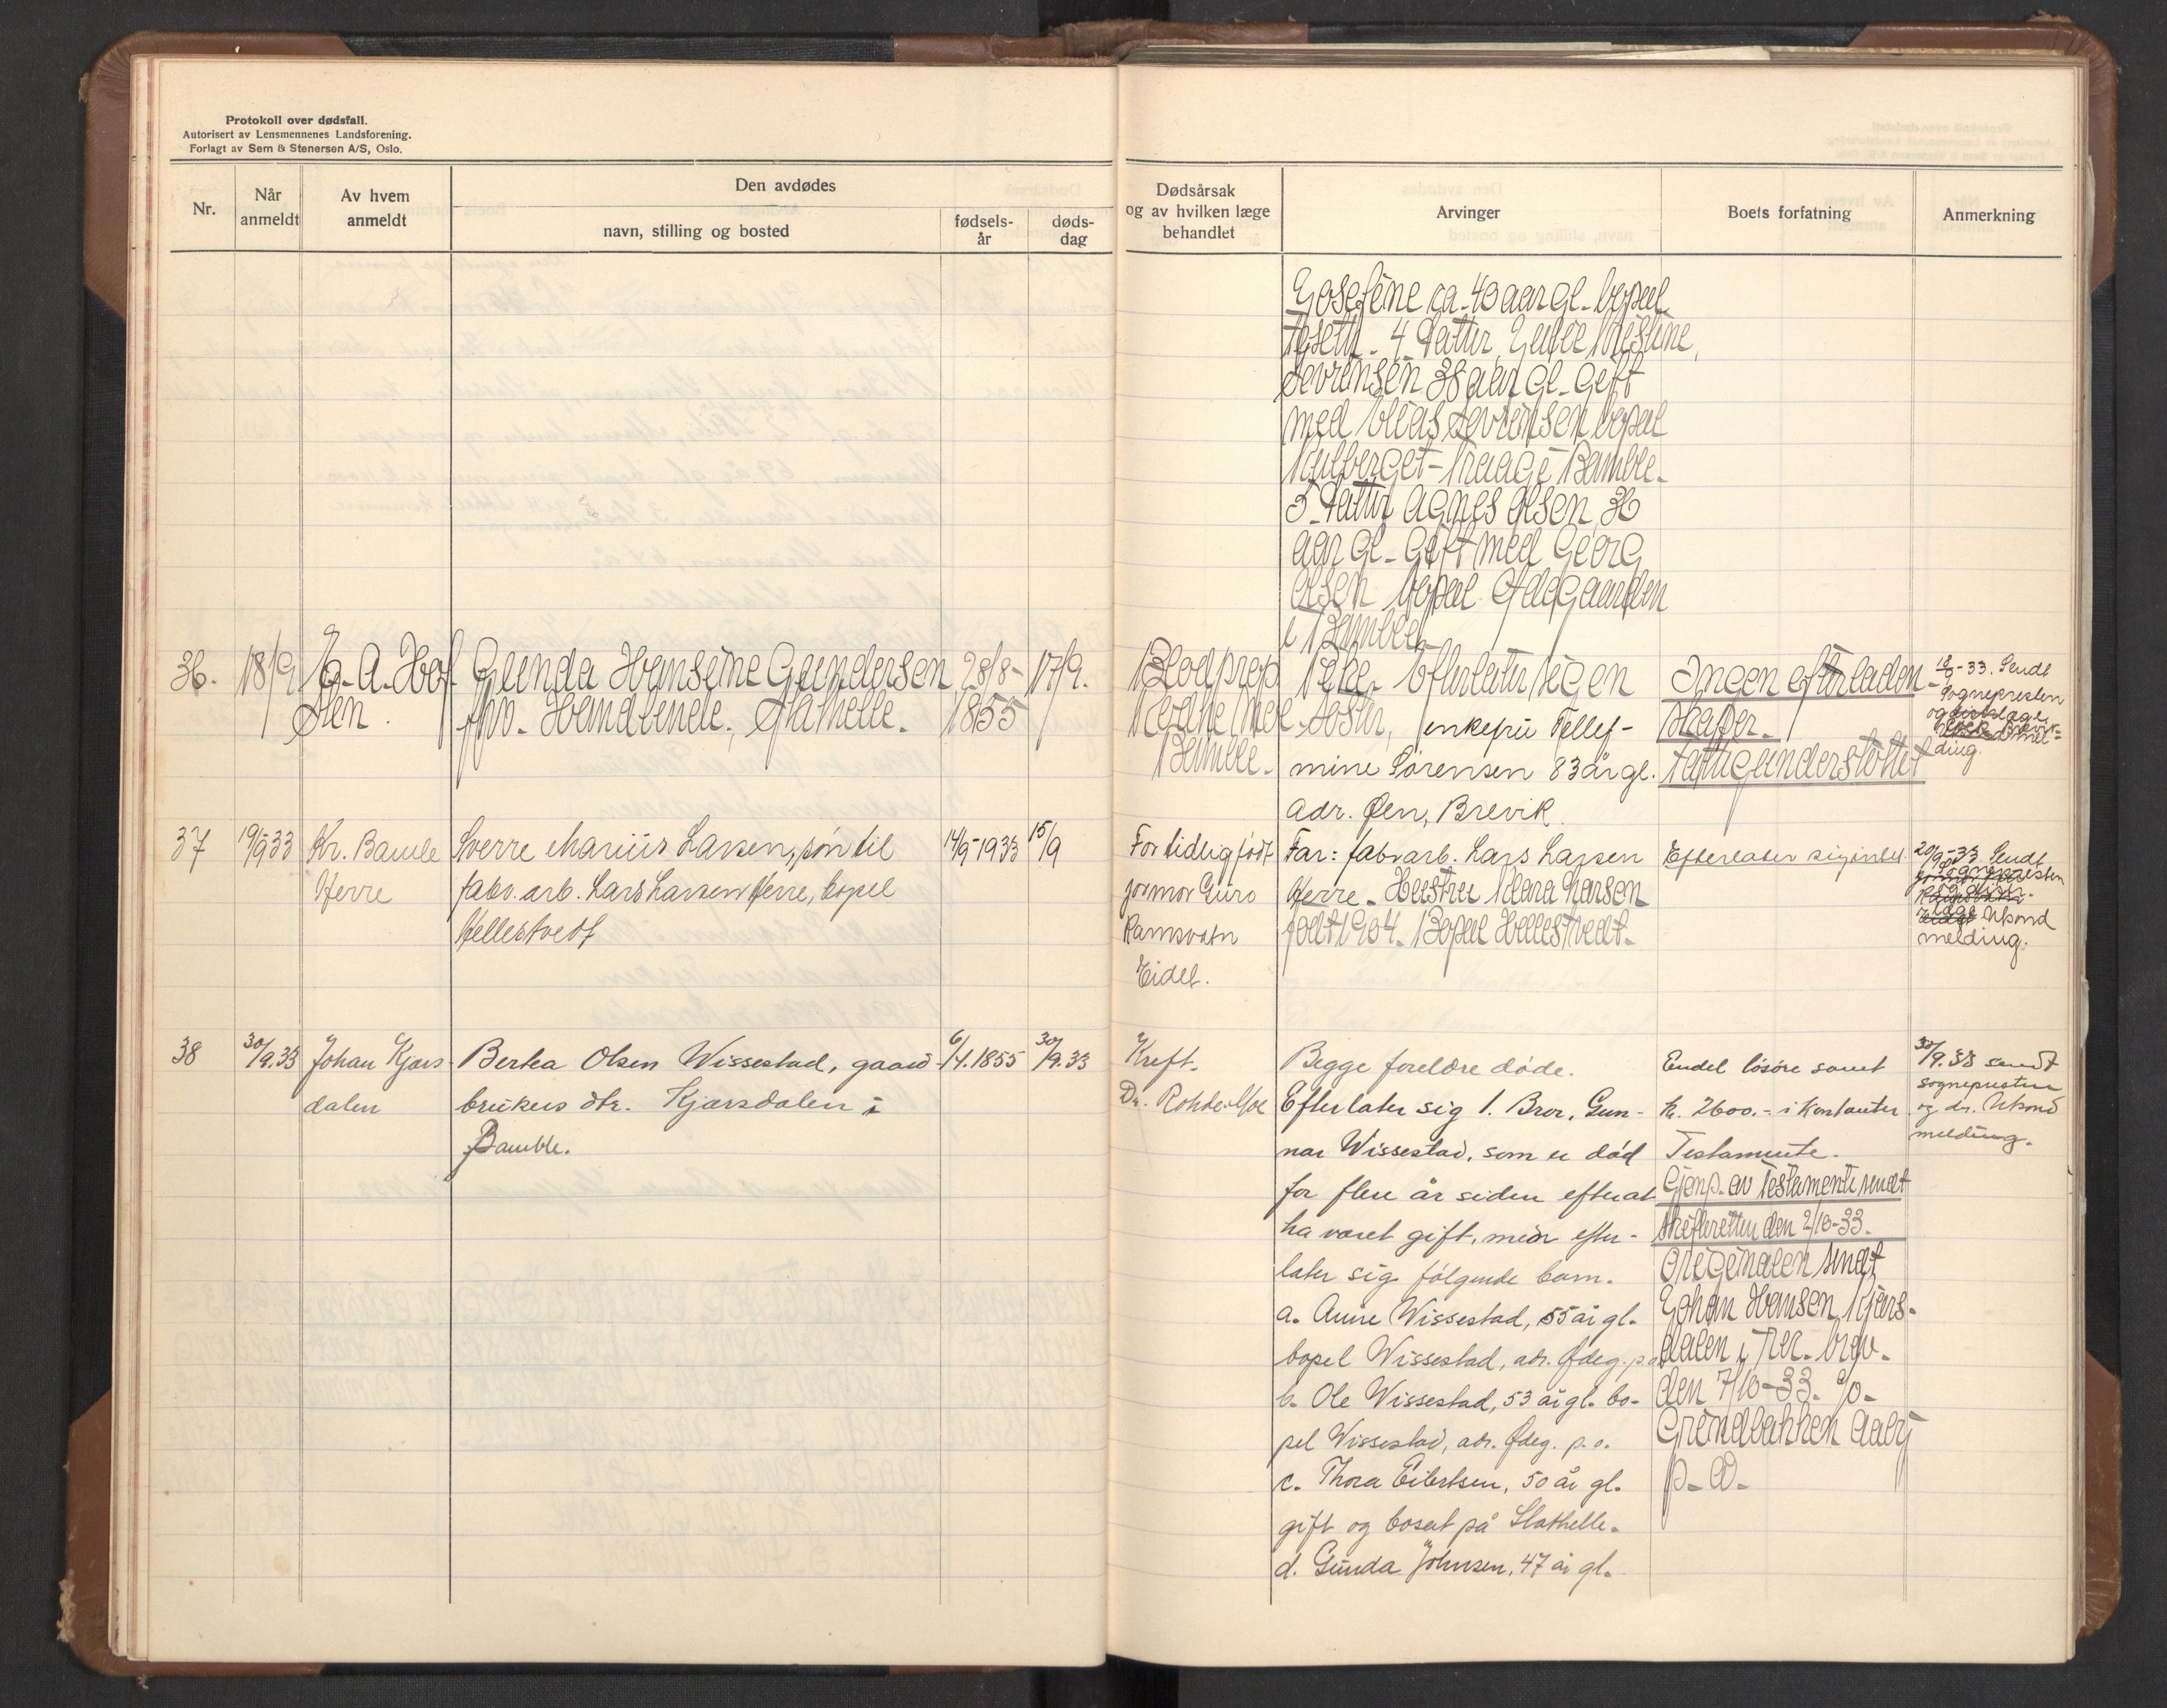 Protokoll over dødsfall.
Autorisert av Lensmennenes Landsforening.
Forlagt av Sem & Stenersen A/S, Oslo.
Nr.
Når anmeldt
Av hvem anmeldt
Den avdødes
navn, stilling og bosted
fødsels-år
døds-dag
Dødsårsak og av hvilken læge behandlet
Arvinger
Boets forfatning
Anmerkning
Josefine ca. 40 aar gl. bopæl
4 Datter
Sørensen 38 aar gl. Gift
med Sørensen bopæl
i Bamble.
5. Datter Agnes Olsen 36
aar gl. Gift med Georg
Olsen bopæl Ødegaarden
i Bamble
36.
18/9
A. Hof
Gunda Hansine Gundersen
fhv. Handlende, Stathelle.
28/8-
1855
17/9.
Blodprop
Bamble.
Ikke. Efterlater 1 Egen
Søster, enkefru Tellef-
mine Sørensen 83 år gl.
adr. Øen, Brevik.
Ingen efterladen-
skaper.
Fattigunderstøttet
-33. Sendt
Sognepresten
ding.
37
19/9 33
Kr. Bamle
Herre
Sverre Marius Larsen, søn til
fabr. arb. Lars Larsen Herre, bopel
Hellestvedt
14/9-1933
15/9
For tidlig født
jormor Guro
Ramsvatn
Eidet.
Far: fabr arb. Lars Larsen
Herre. Hustru Klara Larsen
født 1904. Bopæl Hellestvedt.
Efterlater sig intet.
20/9-33. Sendt
Sognepresten
melding.
38
30/9.33
Johan Kjærs-
dalen
Bertea Olsen Wissestad, gaard-
brukers dtr. Kjærsdalen i
Bamble.
6/4.1855
30/9.33
Kreft.
Dr. Rohde
Begge foreldre døde.
Efterlater sig 1. Bror, Gun-
nar Wissestad, som er død
for flere år siden efter at
ha været gift, men efter-
later sig følgende barn.
a. Anne Wissestad, 55 år gl.
bopel Wissestad, adr. Ødeg. p.o.
b. Ole Wissestad, 53 år gl. bo-
pel Wissestad, adr. Ødeg. p.o.
c. Thora Eilertsen, 50 år gl.
gift og bosat på Stathelle.
d. Gunda Johnsen, 47 år gl.
Endel løsøre samt
kr. 2600.- i kontanter
Testamente.
Gjenp. av Testamente sendt
skifteretten den 2/10-33.
Originalen sendt
Johan Hansen Kjærs-
dalen i rec. brev.
den 7/10-33.
Grindbakken
30/9.33 sendt
sognepresten
og dr.
melding.